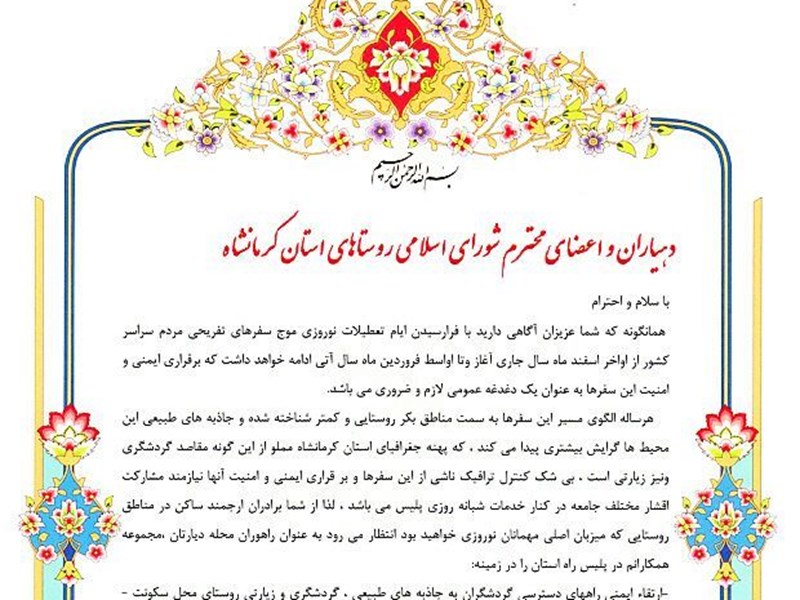 بسم الله الرحمن الرحیم
دهیاران و اعضای محترم شورای اسلامی روستاهای استان کرمانشاه
با سلام و احترام
همانگونه که شما عزیزان آگاهی دارید با فرارسیدن ایام تعطیلات نوروزی موج سفرهای تفریحی مردم سراسر
کشور از اواخر اسفند ماه سال جاری آغاز وتا اواسط فروردین ماه سال آتی ادامه خواهد داشت که برقراری ایمنی و
امنیت این سفرها به عنوان یک دغدغه عمومی لازم و ضروری می باشد.
هرساله الگوی مسیر این سفرها به سمت مناطق بکر روستایی و کمتر شناخته شده و جاذبه های طبیعی این
محیط ها گرایش بیشتری پیدا می کند ، که پهنه جغرافیای استان کرمانشاه مملو از این گونه مقاصد گردشگری
ونیز زیارتی است ، بی شک کنترل ترافیک ناشی از این سفرها و بر قراری ایمنی و امنیت آنها نیازمند مشارکت
اقشار مختلف جامعه در کنار خدمات شبانه روزی پلیس می باشد ، لذا از شما برادران ارجمند ساکن در مناطق
روستایی که میزبان اصلی مهمانان نوروزی خواهید بود انتظار می رود به عنوان راهوران محله دیارتان ،مجموعه
همکارانم در پلیس راه استان را در زمینه:
-ارتقاء ایمنی راههای دسترسی گردشگران به جاذبه های طبیعی ، گردشگری و زیارتی روستای محل سکونت -